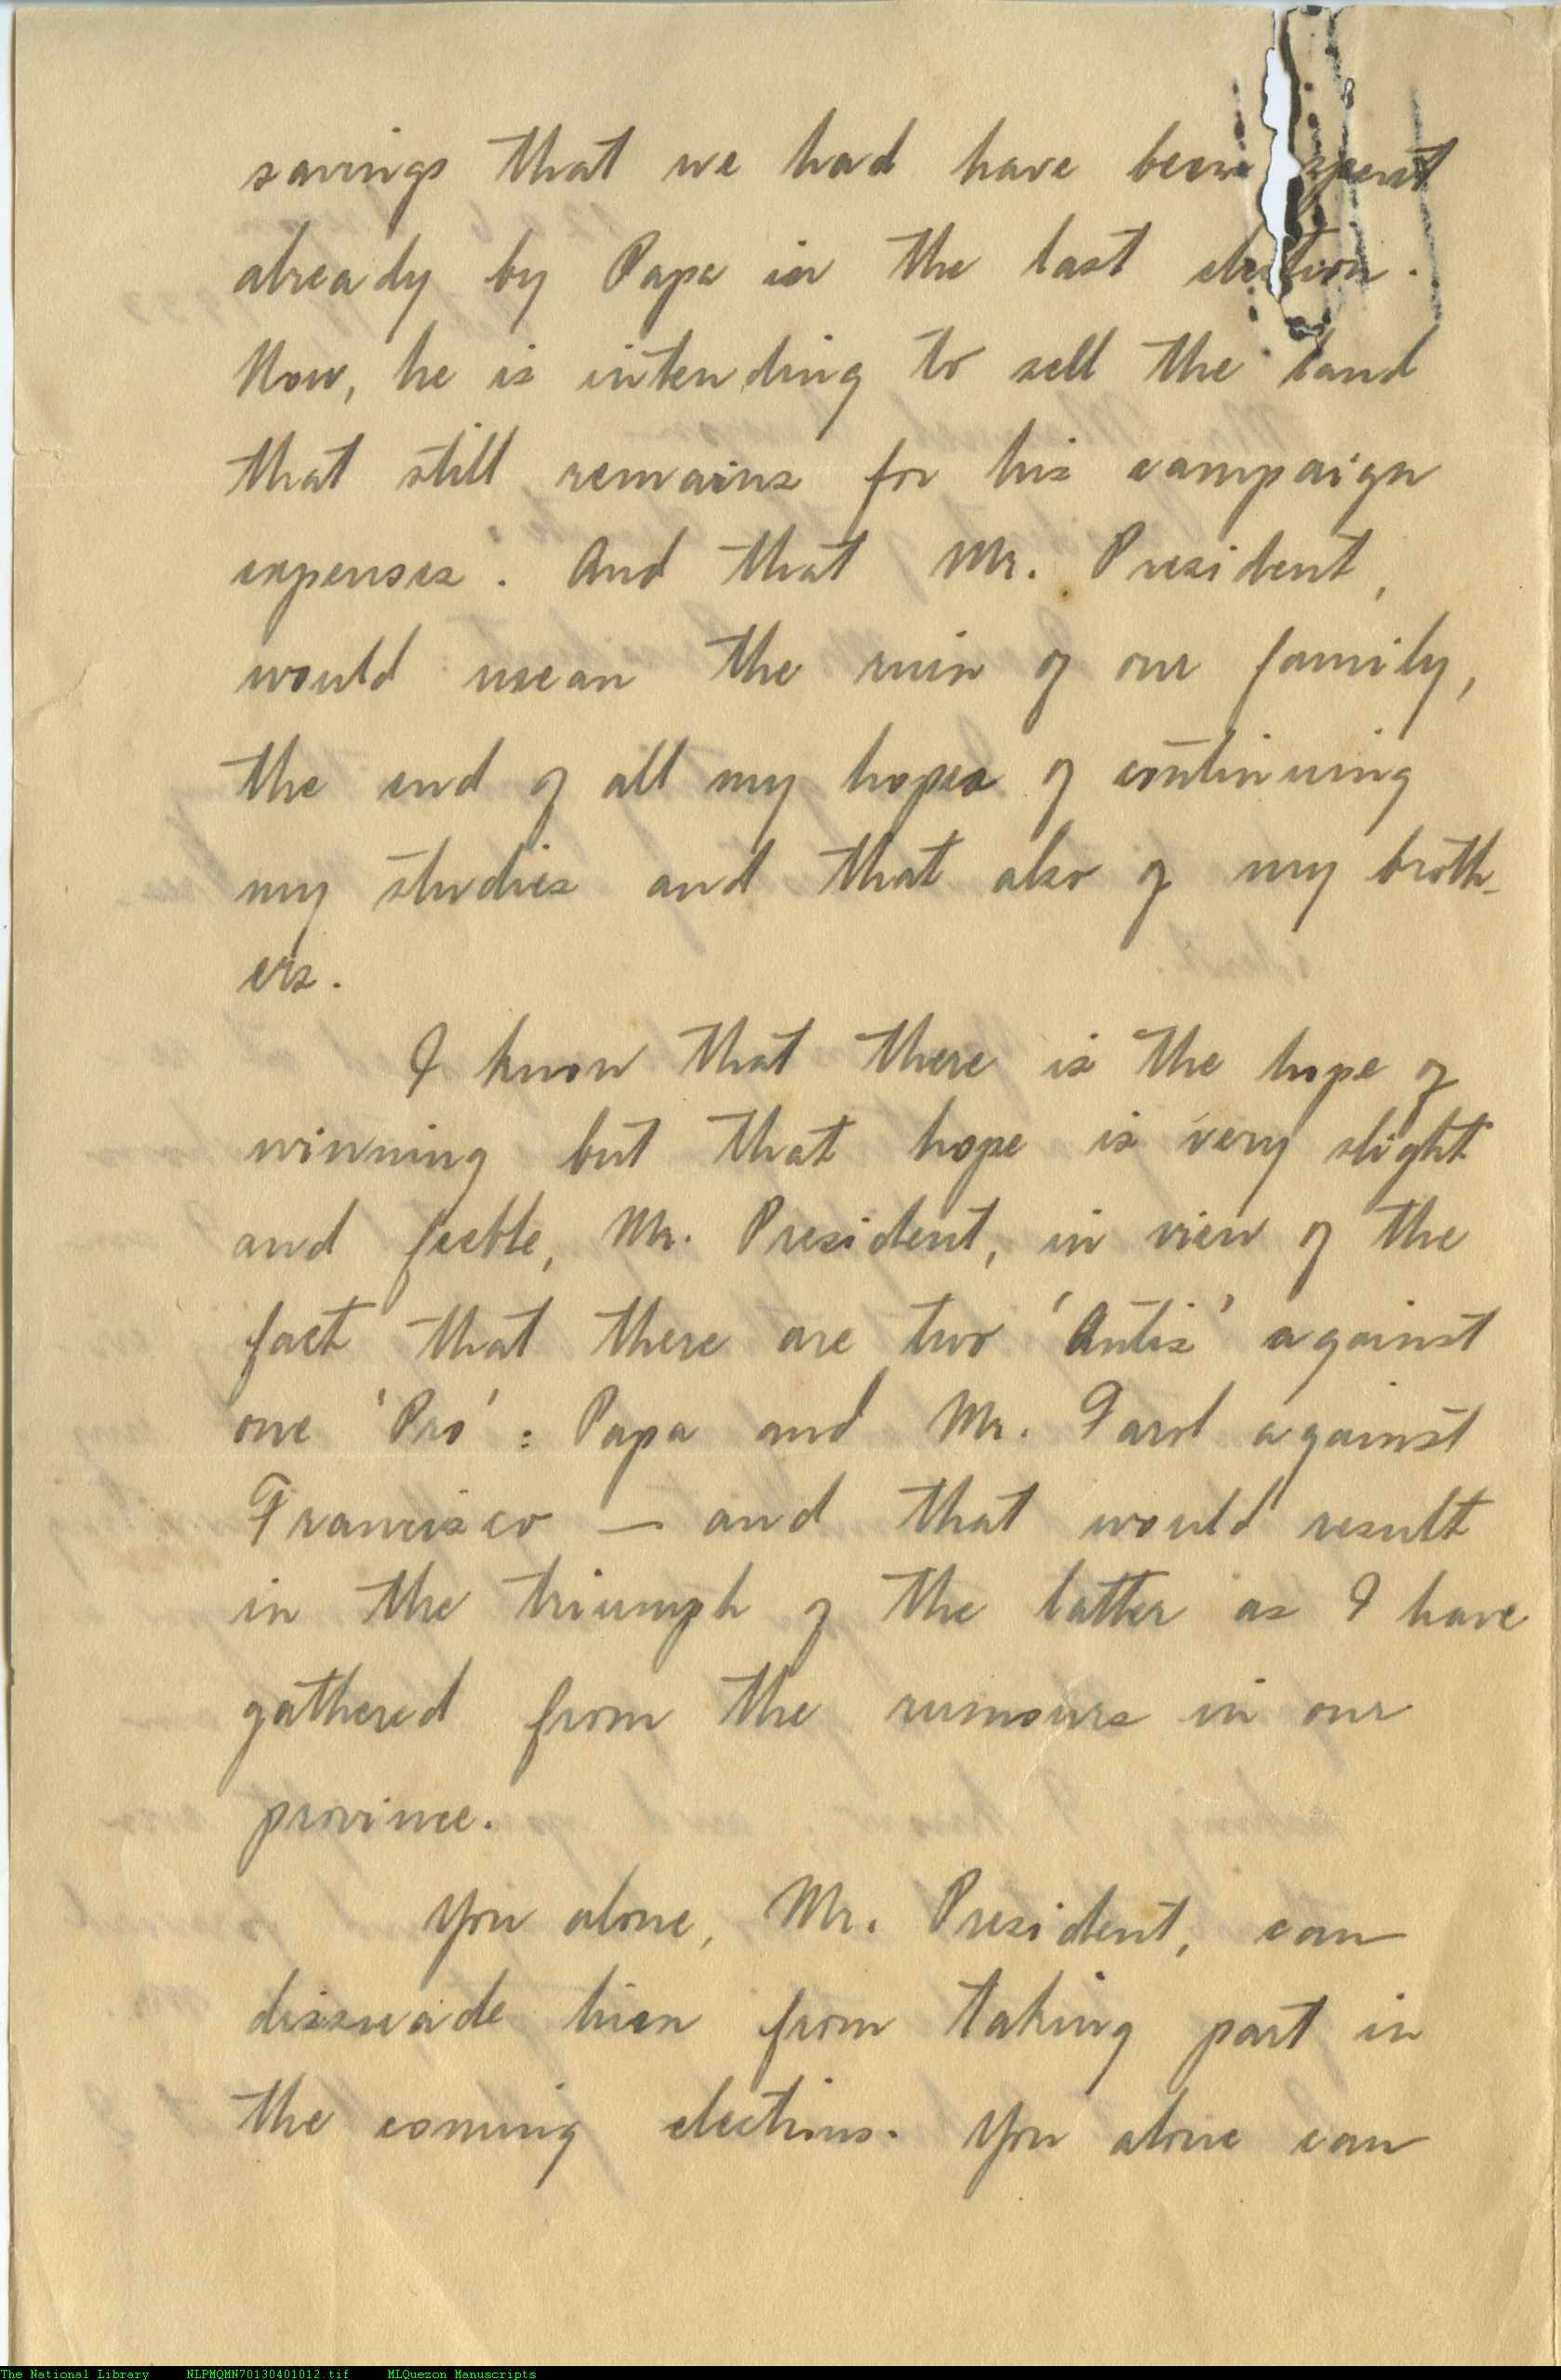 savings that we had have been spent
already by Papa in the last election.
Now, he is intending to sell the land
that still remains for his campaign
expenses. And that Mr. President,
would mean the ruin of our family,
the end of all my hopes of continuing
my studies and that also of my broth-
ers.
I know that there is the hope of
winning but that hope is very slight
and feeble, Mr. President, in view of the
fact that there are two 'Antis' against
one 'Pro' : Papa and Mr. against
Francisco — and that would result
in the triumph of the latter as I have
gathered from the rumours in our
province.
You alone, Mr. President, can
dissuade him from taking part in
the coming elections. You alone can
The National Library NLPMQMN70130401012.tif MLQuezon Manuscripts